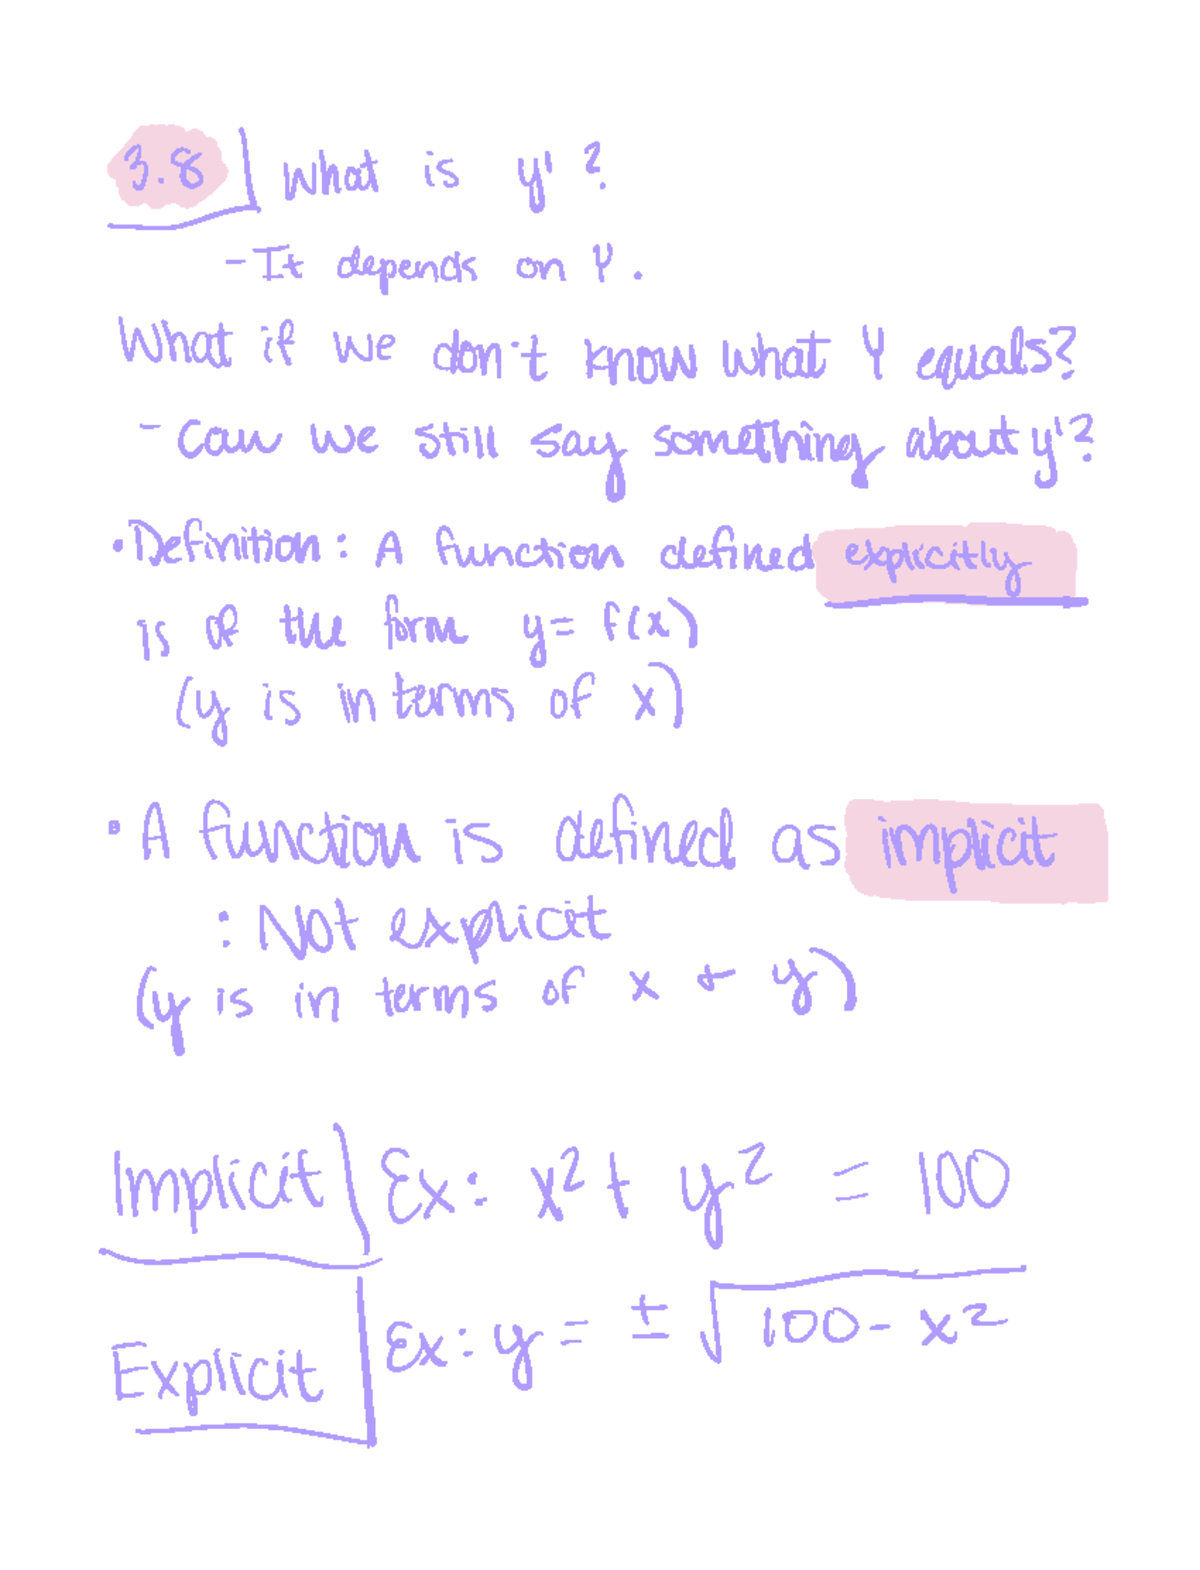 3.8 What is y' ?
- It depends on Y.
What if we don't know what Y equals?
- Can we still say something about y'?
• Definition: A function defined explicitly
is of the form y = f(x)
(y is in terms of x)
• A function is defined as implicit
: Not explicit
(y is in terms of x & y)
Implicit Ex: x² + y² = 100
Explicit Ex: y = ± √100 - x²